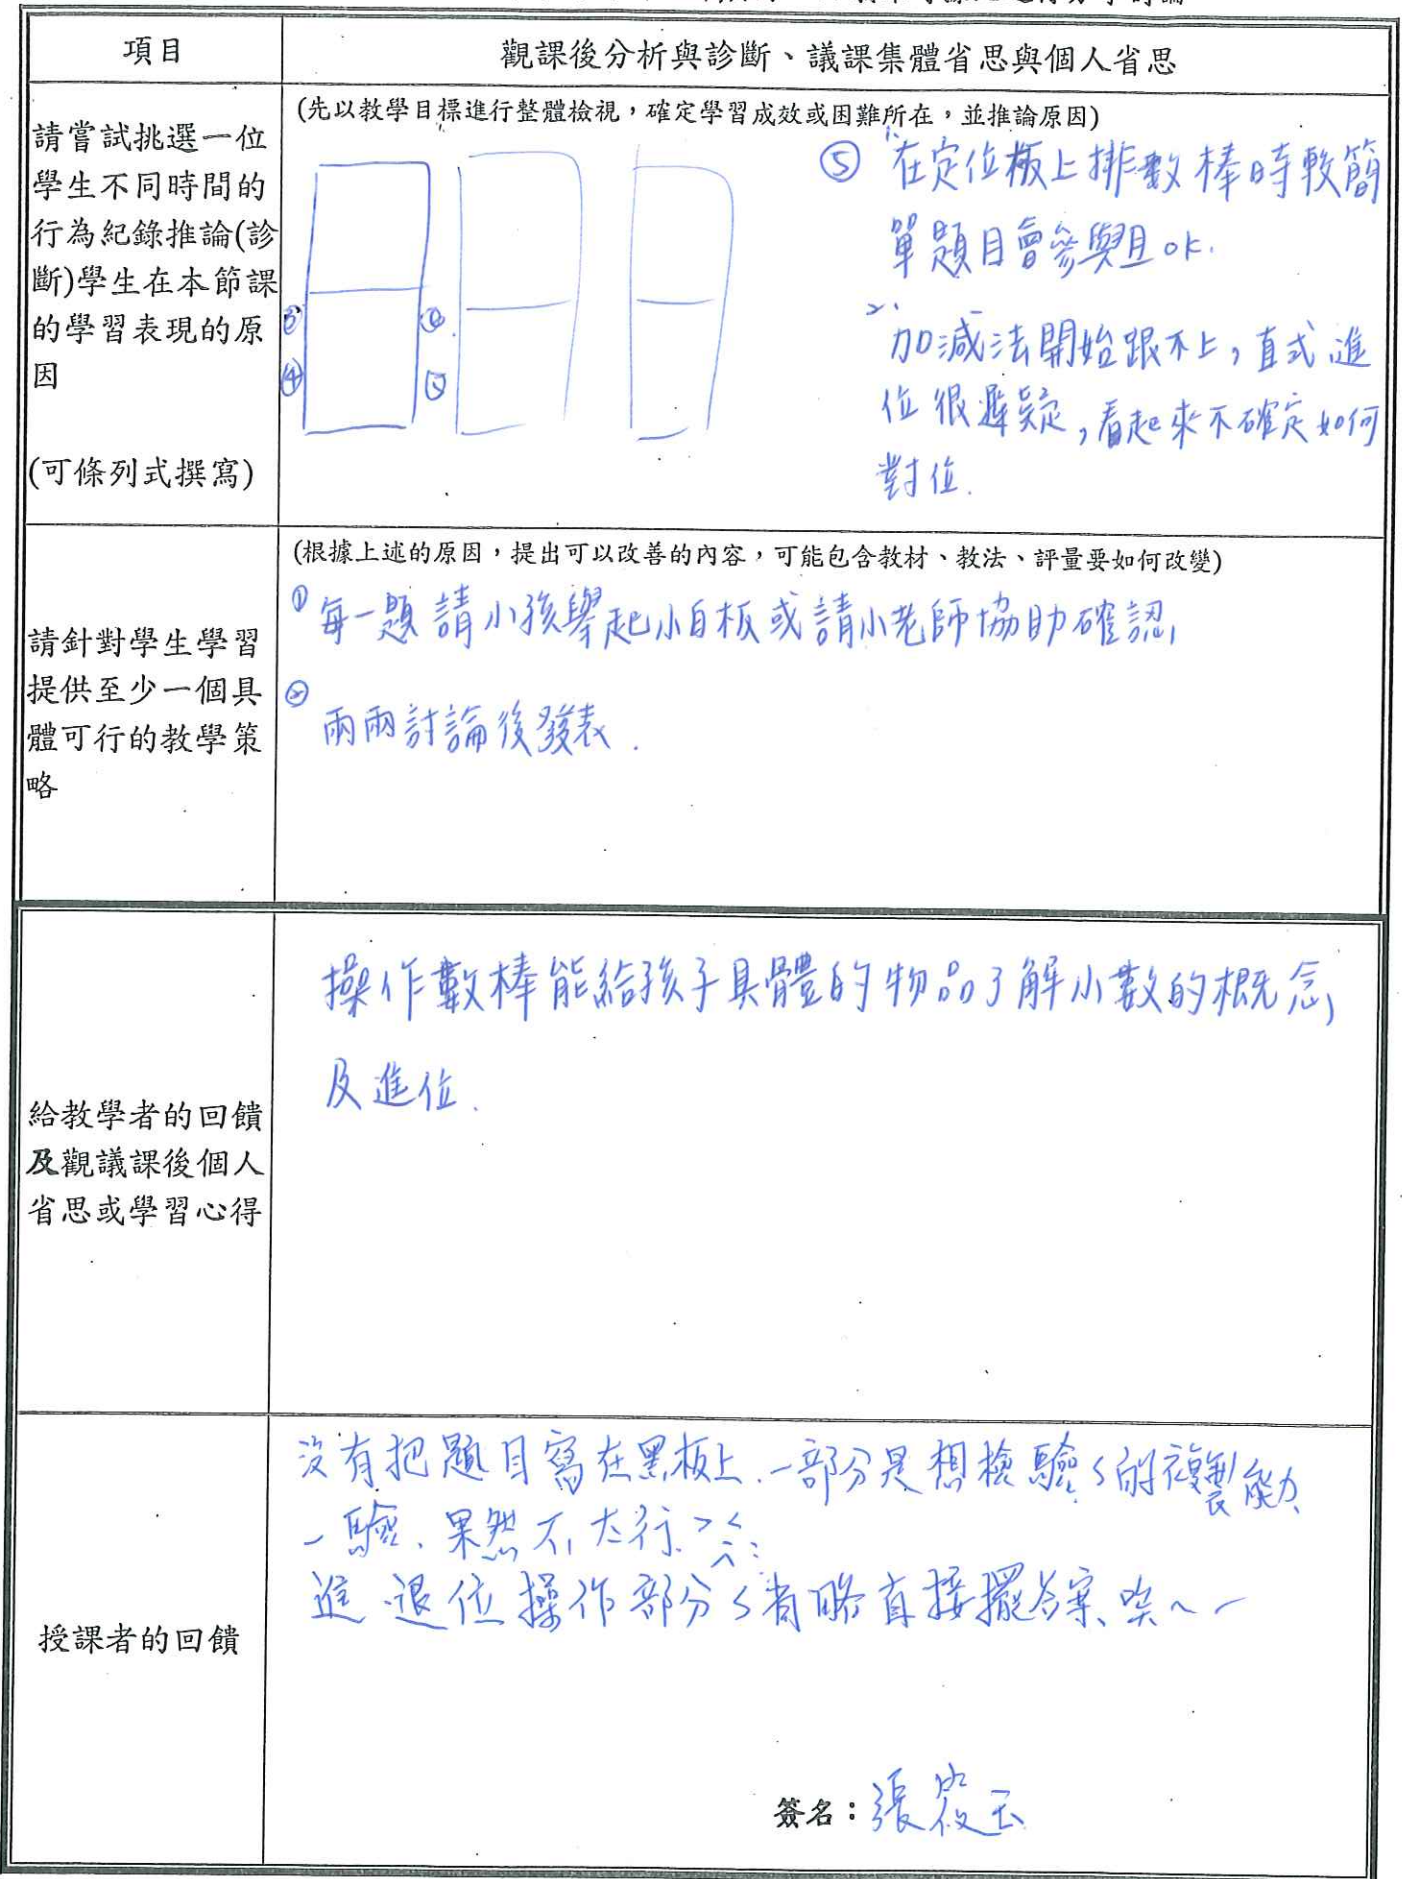 項目
觀課後分析與診斷、議課集體省思與個人省思
請嘗試挑選一位
學生不同時間的
行為紀錄推論(診
斷)學生在本節課
的學習表現的原
因
(可條列式撰寫)
(先以教學目標進行整體檢視，確定學習成效或困難所在，並推論原因)
③
④
⑤ 1. 在定位板上排數棒時較簡
單題目會參與且ok.
2. 加減法開始跟不上，直式進
位很遲疑，看起來不確定如何
對位.
請針對學生學習
提供至少一個具
體可行的教學策
略
(根據上述的原因，提出可以改善的內容，可能包含教材、教法、評量要如何改變)
① 每一題請小孩舉起小白板或請小老師協助確認,
② 兩兩討論後發表.
給教學者的回饋
及觀議課後個人
省思或學習心得
操作數棒能給孩子具體的物品了解小數的概念,
及進位.
授課者的回饋
沒有把題目寫在黑板上.一部分是想檢驗S的複製能力、
一驗、果然不太行.><
進、退位操作部分S省略直接擺答案、唉~
簽名：張筱玉